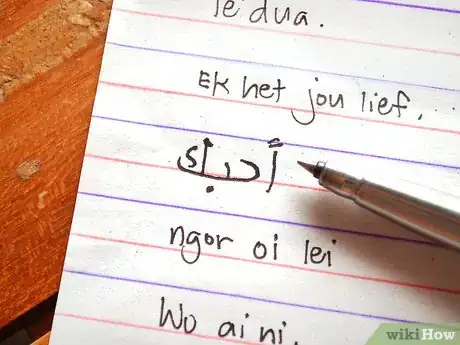 Te dua.
Ek het jou lief.
أحبك
ngor oi lei
Wo ai ni.
wikiHow